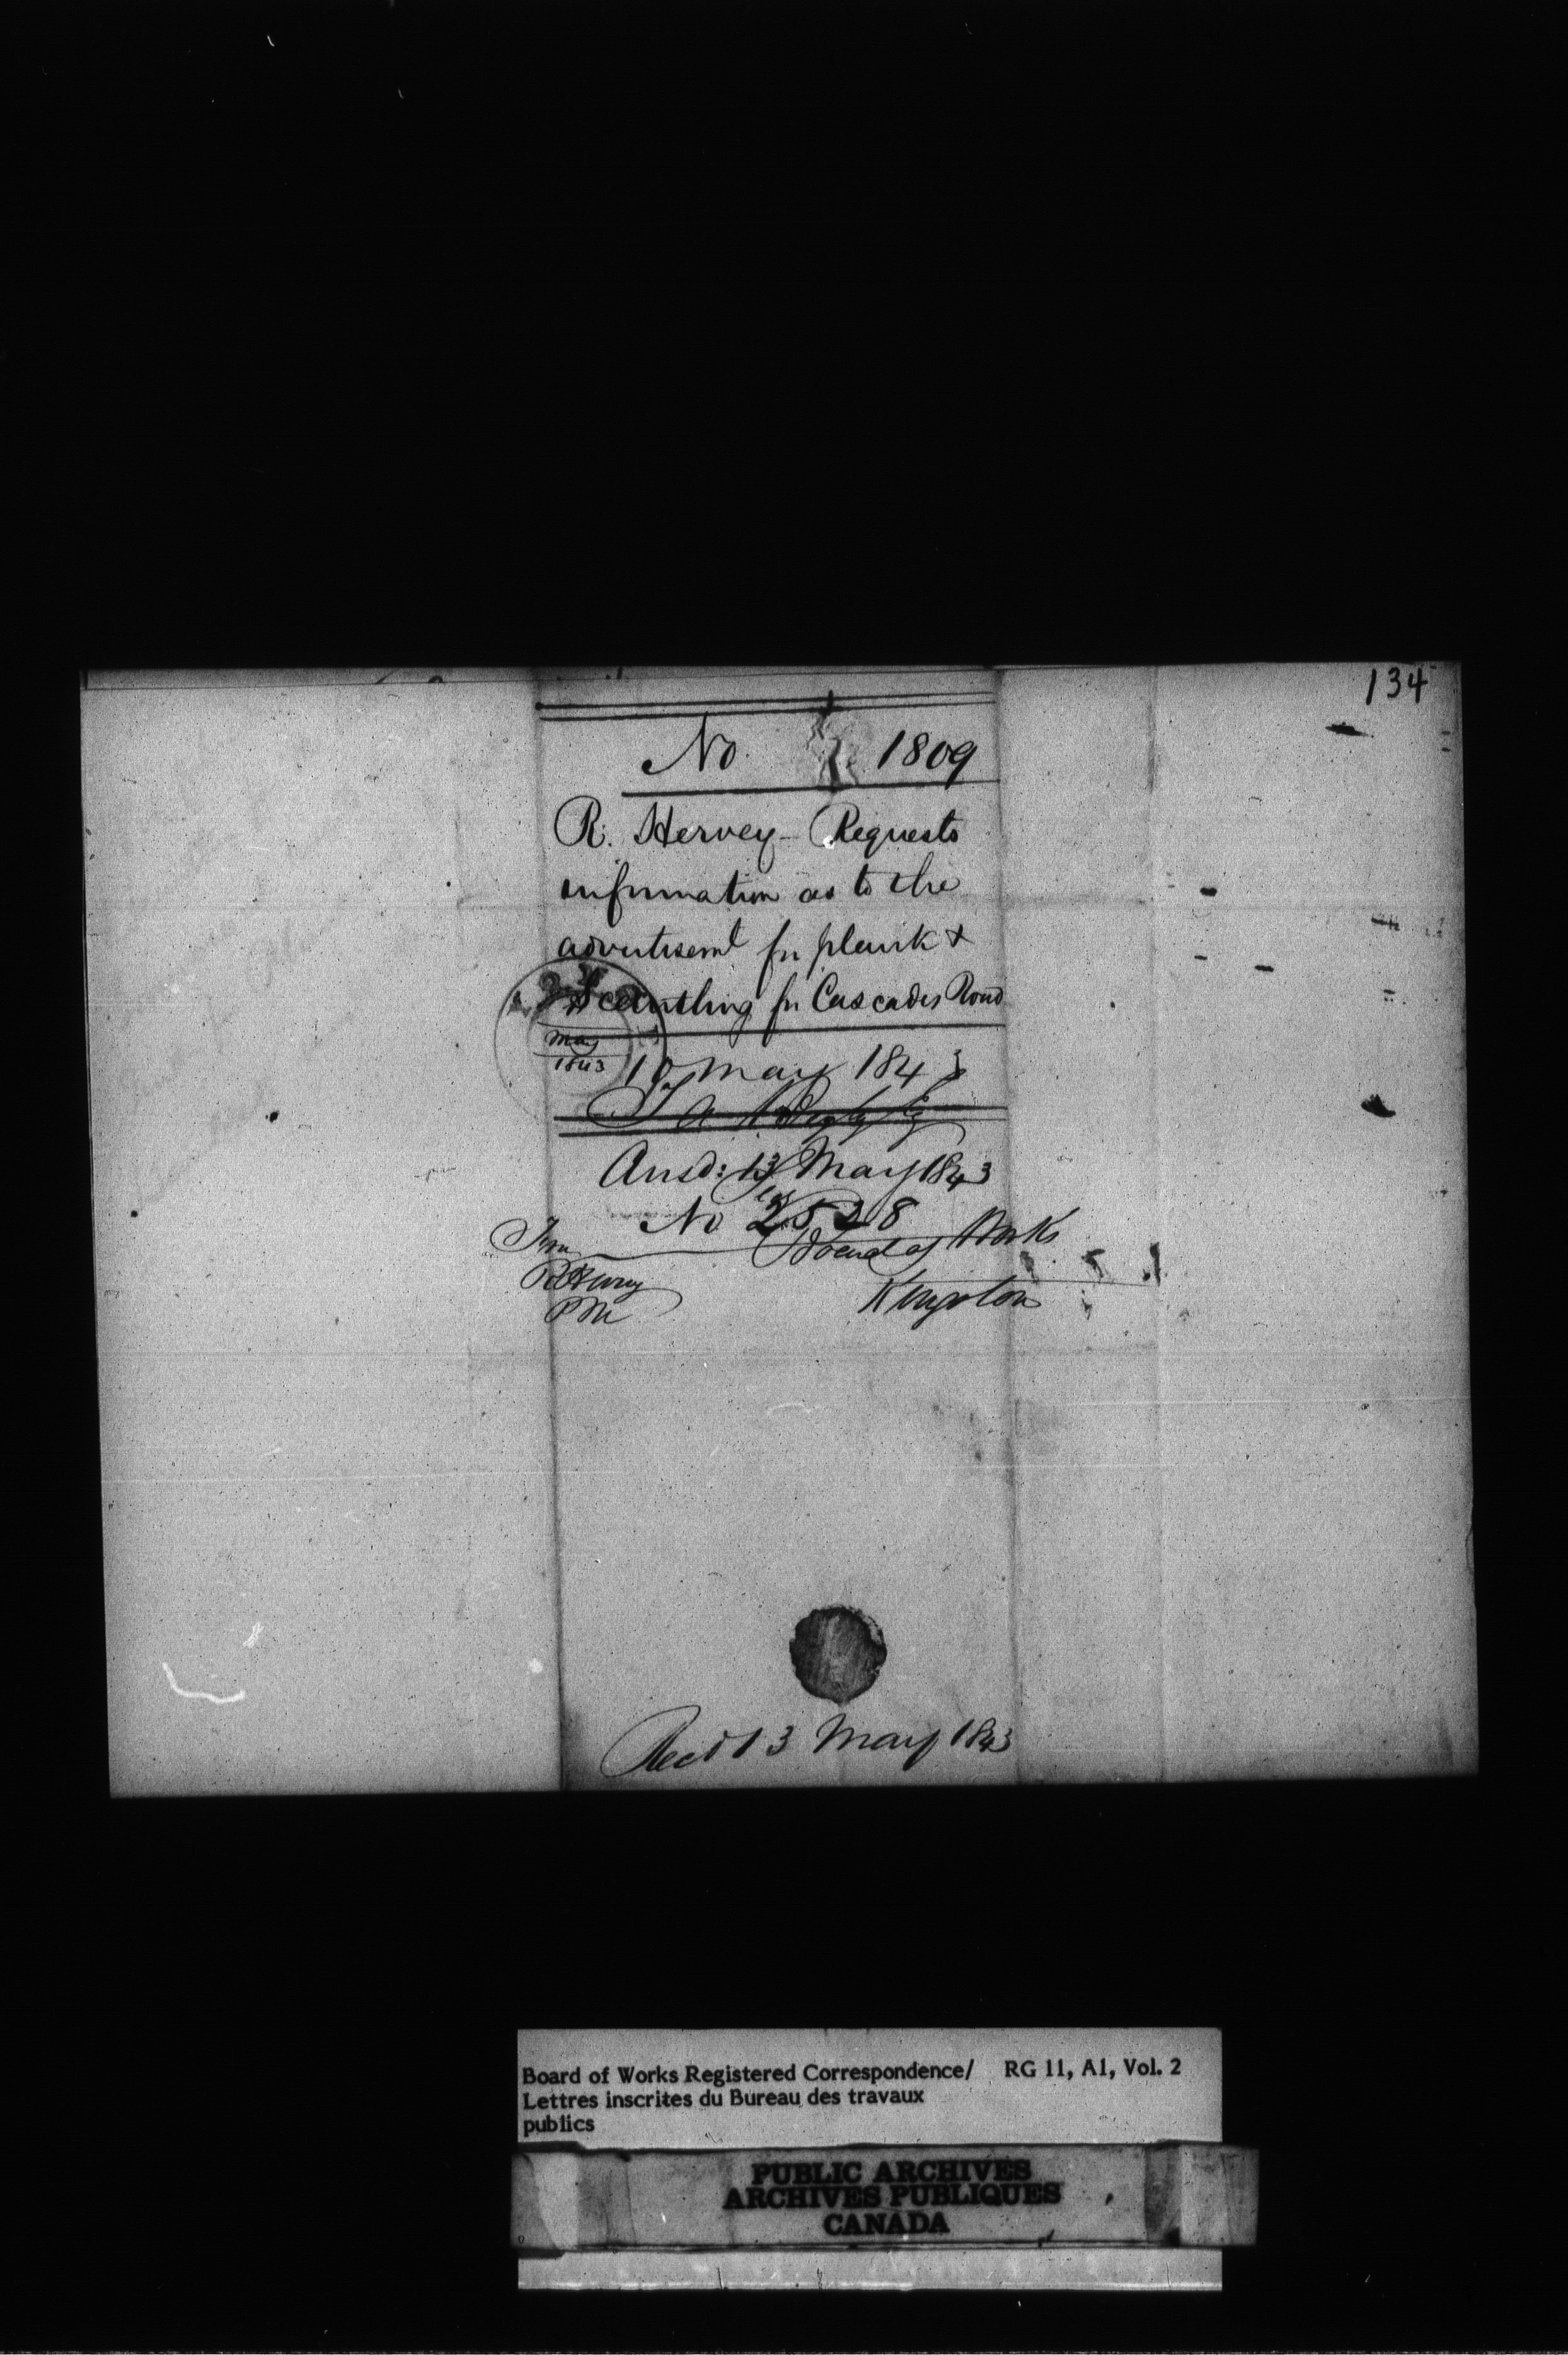 134
No 1809
R. Hervey - Requests
information as to the
advertisemt for plank &
Scantling for Cascades Road
May
1843
10 May 1843
T A Begly Esq
Ansd: 13 May 1843
No 2528
From
Board of Works
R Hervey
PM
Kingston
Recd 13 May 1843
Board of Works Registered Correspondence/ RG 11, A1, Vol. 2
Lettres inscrites du Bureau des travaux
publics
PUBLIC ARCHIVES
ARCHIVES PUBLIQUES
CANADA